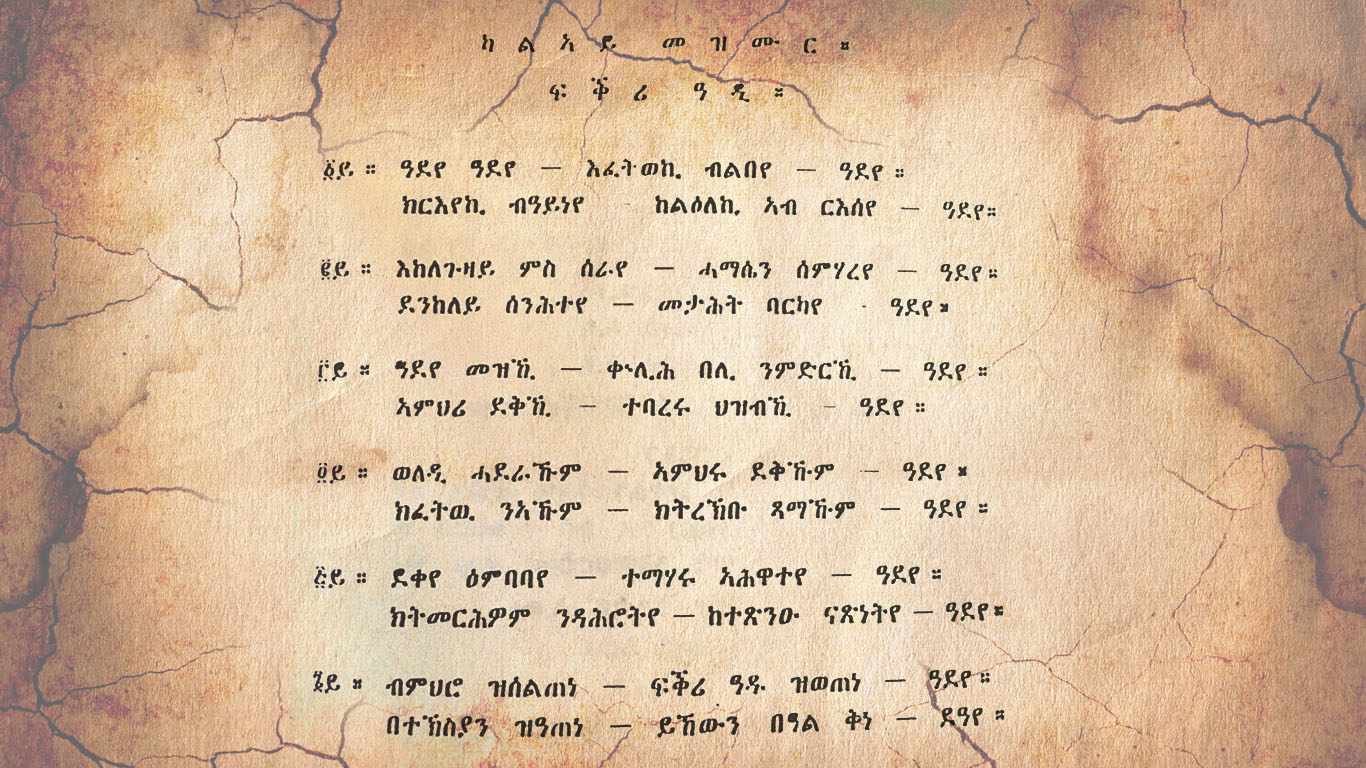 ካልኣይ መዝሙር ።
ፍቕሪ ዓዲ ።
፩ይ ። ዓደየ ዓደየ — እፈትወኪ ብልበየ — ዓደየ ።
ክርእየኪ ብዓይነየ ከልዕለኪ ኣብ ርእሰየ — ዓደየ ።
፪ይ ። እከለጉዛይ ምስ ሰራየ — ሓማሴን ሰምሃረየ — ዓደየ ።
ደንከለይ ሰንሕተየ — መታሕት ባርካየ - ዓደየ ።
፫ይ ። ዓደየ መዝኺ — ቀሊሕ በሊ ንምድርኺ — ዓደየ ።
ኣምህሪ ደቅኺ — ተባረሩ ህዝብኺ — ዓደየ ።
፬ይ ። ወለዲ ሓደራኹም — ኣምህሩ ደቅኹም — ዓደየ ።
ክፈትዉ ንኣኹም — ክትረኽቡ ጻማኹም — ዓደየ ።
፭ይ ። ደቀየ ዕምባባየ — ተማሃሩ ኣሕዋተየ — ዓደየ ።
ክትመርሕዎም ንዳሕሮትየ — ከተጽንዑ ናጽነትየ — ዓደየ ።
፮ይ ። ብምህሮ ዝሰልጠነ — ፍቕሪ ዓዱ ዝወጠነ — ዓደየ ።
በተኽስያን ዝዓጠነ — ይኸውን በዓል ቅነ — ደዓየ ።